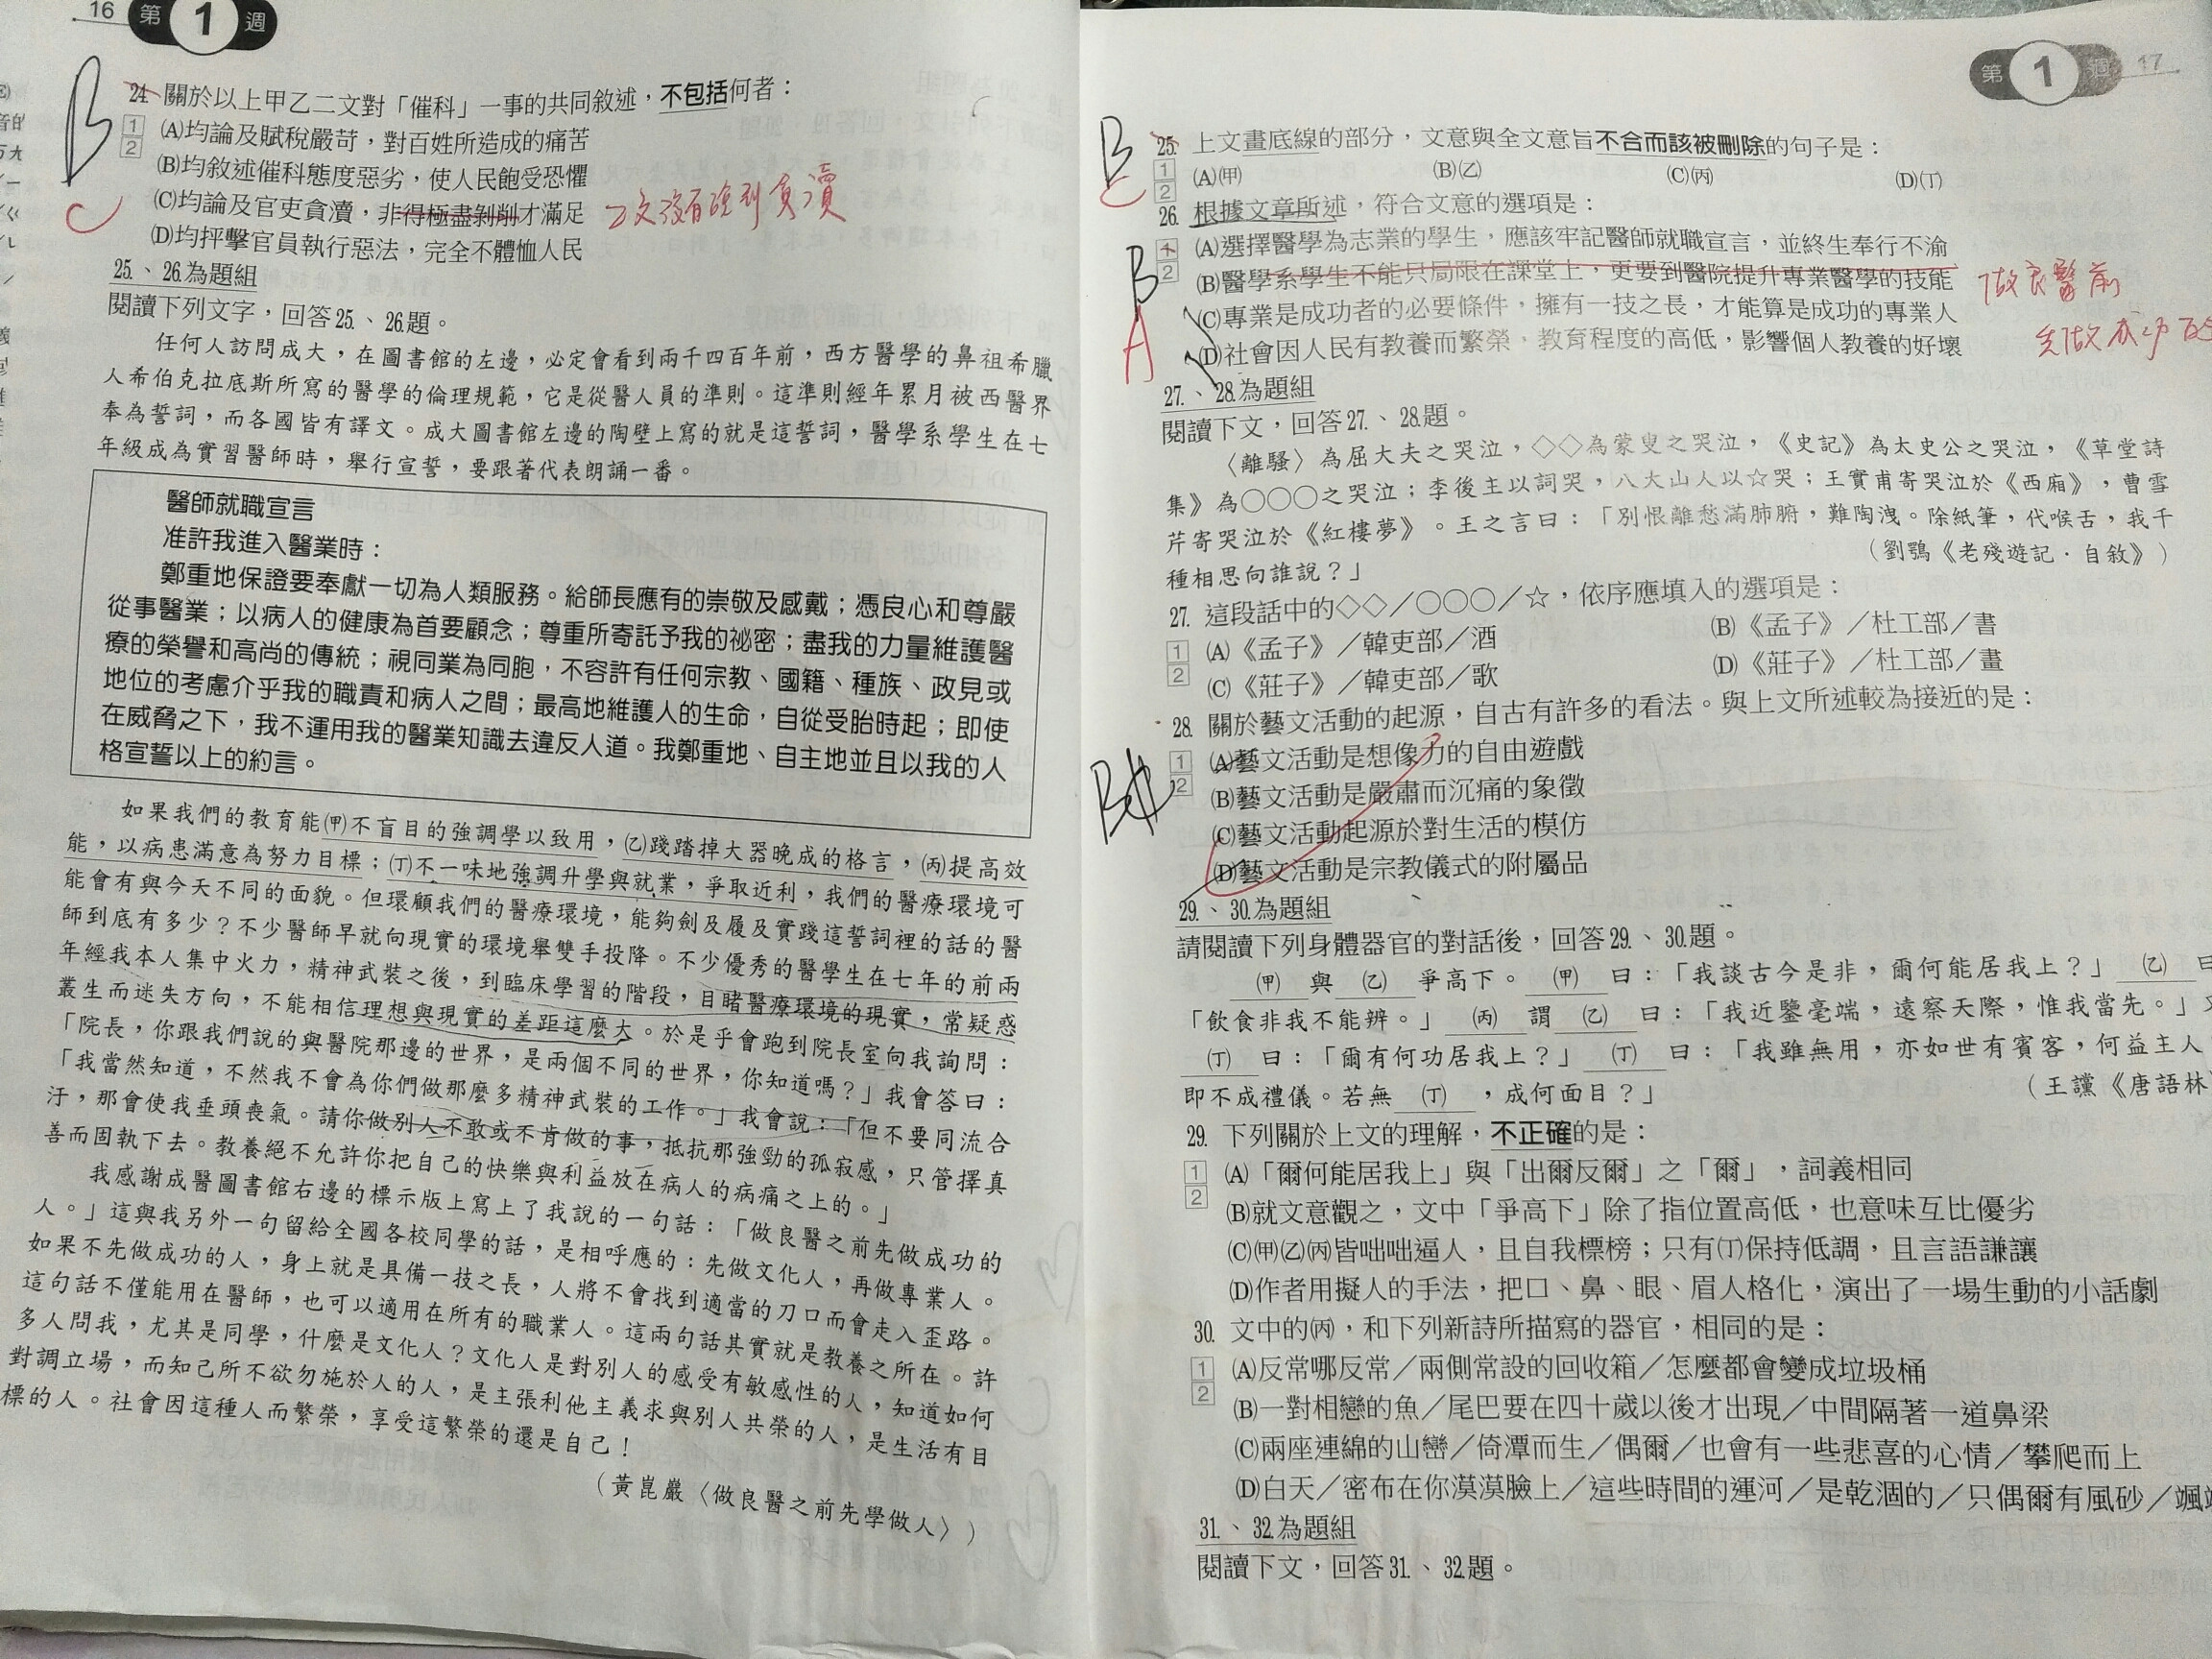 16 第 1 週
B
24. 關於以上甲乙二文對「催科」一事的共同敘述，不包括何者：
1
2
(A)均論及賦稅嚴苛，對百姓所造成的痛苦
(B)均敘述催科態度惡劣，使人民飽受恐懼
C
(C)均論及官吏貪瀆，非得極盡剝削才滿足
(D)均抨擊官員執行惡法，完全不體恤人民
25.、26.為題組
閱讀下列文字，回答25.、26.題。
任何人訪問成大，在圖書館的左邊，必定會看到兩千四百年前，西方醫學的鼻祖希臘
人希伯克拉底斯所寫的醫學的倫理規範，它是從醫人員的準則。這準則經年累月被西醫界
奉為誓詞，而各國皆有譯文。成大圖書館左邊的陶壁上寫的就是這誓詞，醫學系學生在七
年級成為實習醫師時，舉行宣誓，要跟著代表朗誦一番。
醫師就職宣言
准許我進入醫業時：
鄭重地保證要奉獻一切為人類服務。給師長應有的崇敬及感戴；憑良心和尊嚴
從事醫業；以病人的健康為首要顧念；尊重所寄託予我的祕密；盡我的力量維護醫
療的榮譽和高尚的傳統；視同業為同胞，不容許有任何宗教、國籍、種族、政見或
地位的考慮介乎我的職責和病人之間；最高地維護人的生命，自從受胎時起；即使
在威脅之下，我不運用我的醫業知識去違反人道。我鄭重地、自主地並且以我的人
格宣誓以上的約言。
如果我們的教育能(甲)不盲目的強調學以致用，(乙)踐踏掉大器晚成的格言，(丙)提高效
能，以病患滿意為努力目標；(丁)不一味地強調升學與就業，爭取近利，我們的醫療環境可
能會有與今天不同的面貌。但環顧我們的醫療環境，能夠劍及履及實踐這誓詞裡的話的醫
師到底有多少？不少醫師早就向現實的環境舉雙手投降。不少優秀的醫學生在七年的前兩
年經我本人集中火力，精神武裝之後，到臨床學習的階段，目睹醫療環境的現實，常疑惑
叢生而迷失方向，不能相信理想與現實的差距這麼大。於是乎會跑到院長室向我詢問：
「院長，你跟我們說的與醫院那邊的世界，是兩個不同的世界，你知道嗎？」我會答曰：
「我當然知道，不然我不會為你們做那麼多精神武裝的工作。」我會說：「但不要同流合
汙，那會使我垂頭喪氣。請你做別人不敢或不肯做的事，抵抗那強勁的孤寂感，只管擇真
善而固執下去。教養絕不允許你把自己的快樂與利益放在病人的病痛之上的。」
我感謝成醫圖書館右邊的標示版上寫上了我說的一句話：「做良醫之前先做成功的
人。」這與我另外一句留給全國各校同學的話，是相呼應的：先做文化人，再做專業人。
如果不先做成功的人，身上就是具備一技之長，人將不會找到適當的刀口而會走入歪路。
這句話不僅能用在醫師，也可以適用在所有的職業人。這兩句話其實就是教養之所在。許
多人問我，尤其是同學，什麼是文化人？文化人是對別人的感受有敏感性的人，知道如何
對調立場，而知己所不欲勿施於人的人，是主張利他主義求與別人共榮的人，是生活有目
標的人。社會因這種人而繁榮，享受這繁榮的還是自己！
（黃崑巖〈做良醫之前先學做人〉）
第 1 週 17
B
C
25. 上文畫底線的部分，文意與全文意旨不合而該被刪除的句子是：
1
2
(A)(甲) (B)(乙) (C)(丙) (D)(丁)
26. 根據文章所述，符合文意的選項是：
1
2
B
A
(A)選擇醫學為志業的學生，應該牢記醫師就職宣言，並終生奉行不渝
(B)醫學系學生不能只局限在課堂上，更要到醫院提升專業醫學的技能
做良醫前
(C)專業是成功者的必要條件，擁有一技之長，才能算是成功的專業人
(D)社會因人民有教養而繁榮，教育程度的高低，影響個人教養的好壞
27.、28.為題組
閱讀下文，回答27.、28.題。
〈離騷〉為屈大夫之哭泣，◇◇為蒙叟之哭泣，《史記》為太史公之哭泣，《草堂詩
集》為○○○之哭泣；李後主以詞哭，八大山人以☆哭；王實甫寄哭泣於《西廂》，曹雪
芹寄哭泣於《紅樓夢》。王之言曰：「別恨離愁滿肺腑，難陶洩。除紙筆，代喉舌，我千
種相思向誰說？」
（劉鶚《老殘遊記．自敘》）
27. 這段話中的◇◇／○○○／☆，依序應填入的選項是：
1
2
(A)《孟子》／韓吏部／酒 (B)《孟子》／杜工部／書
(C)《莊子》／韓吏部／歌 (D)《莊子》／杜工部／畫
28. 關於藝文活動的起源，自古有許多的看法。與上文所述較為接近的是：
1
2
B
(A)藝文活動是想像力的自由遊戲
(B)藝文活動是嚴肅而沉痛的象徵
(C)藝文活動起源於對生活的模仿
(D)藝文活動是宗教儀式的附屬品
29.、30.為題組
請閱讀下列身體器官的對話後，回答29.、30.題。
(甲) 與 (乙) 爭高下。 (甲) 曰：「我談古今是非，爾何能居我上？」 (乙) 曰
「飲食非我不能辨。」 (丙) 謂 (乙) 曰：「我近鑒毫端，遠察天際，惟我當先。」
(丁) 曰：「爾有何功居我上？」 (丁) 曰：「我雖無用，亦如世有賓客，何益主人
即不成禮儀。若無 (丁) ，成何面目？」
（王讜《唐語林
29. 下列關於上文的理解，不正確的是：
1
2
(A)「爾何能居我上」與「出爾反爾」之「爾」，詞義相同
(B)就文意觀之，文中「爭高下」除了指位置高低，也意味互比優劣
(C)(甲)(乙)(丙)皆咄咄逼人，且自我標榜；只有(丁)保持低調，且言語謙讓
(D)作者用擬人的手法，把口、鼻、眼、眉人格化，演出了一場生動的小話劇
30. 文中的(丙)，和下列新詩所描寫的器官，相同的是：
1
2
(A)反常哪反常／兩側常設的回收箱／怎麼都會變成垃圾桶
(B)一對相戀的魚／尾巴要在四十歲以後才出現／中間隔著一道鼻梁
(C)兩座連綿的山巒／倚潭而生／偶爾／也會有一些悲喜的心情／攀爬而上
(D)白天／密布在你漠漠臉上／這些時間的運河／是乾涸的／只偶爾有風砂／颯
31.、32.為題組
閱讀下文，回答31.、32.題。